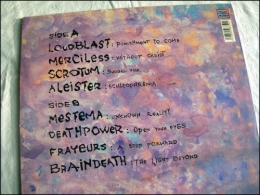 SIDE A
LOUDBLAST: PUNISHMENT TO COME
MERCILESS: WITHOUT CAUSE
SCROTUM:
ALEISTER: SCHIZOPHRENIA
SIDE B
MESTEMA: UNKNOWN REALITY
DEATHPOWER: OPEN YOUR EYES
FRAYEURS: A STEP FORWARD
BRAINDEATH: THE LIGHT BEYOND